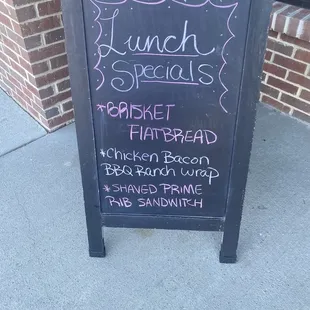 Lunch
Specials
*BRISKET
FLATBREAD
*Chicken Bacon
BBQ Ranch Wrap
*SHAVED PRIME
RIB SANDWITCH